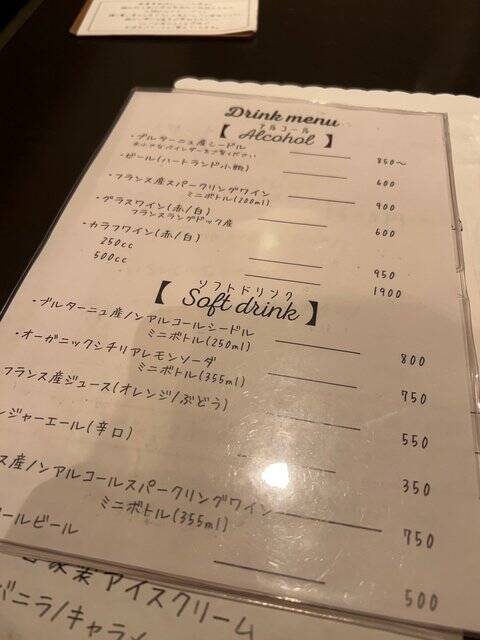 Drink menu
アルコール
【 Alcohol 】
・ブルターニュ産シードル 850〜
※小さなバインダーをご覧ください
・ビール(ハートランド小瓶) 600
・フランス産スパークリングワイン
ミニボトル(200ml) 900
・グラスワイン(赤/白) 600
フランスラングドック産
・カラフワイン(赤/白)
250cc 950
500cc 1900
ソフトドリンク
【 Soft drink 】
・ブルターニュ産ノンアルコールシードル
ミニボトル(250ml) 800
・オーガニックシチリアレモンソーダ
ミニボトル(355ml) 750
フランス産ジュース(オレンジ/ぶどう) 550
ンジャーエール(辛口) 350
ス産ノンアルコールスパークリングワイン
ミニボトル(355ml) 750
ールビール 500
家製アイスクリーム
バニラ/キャラ